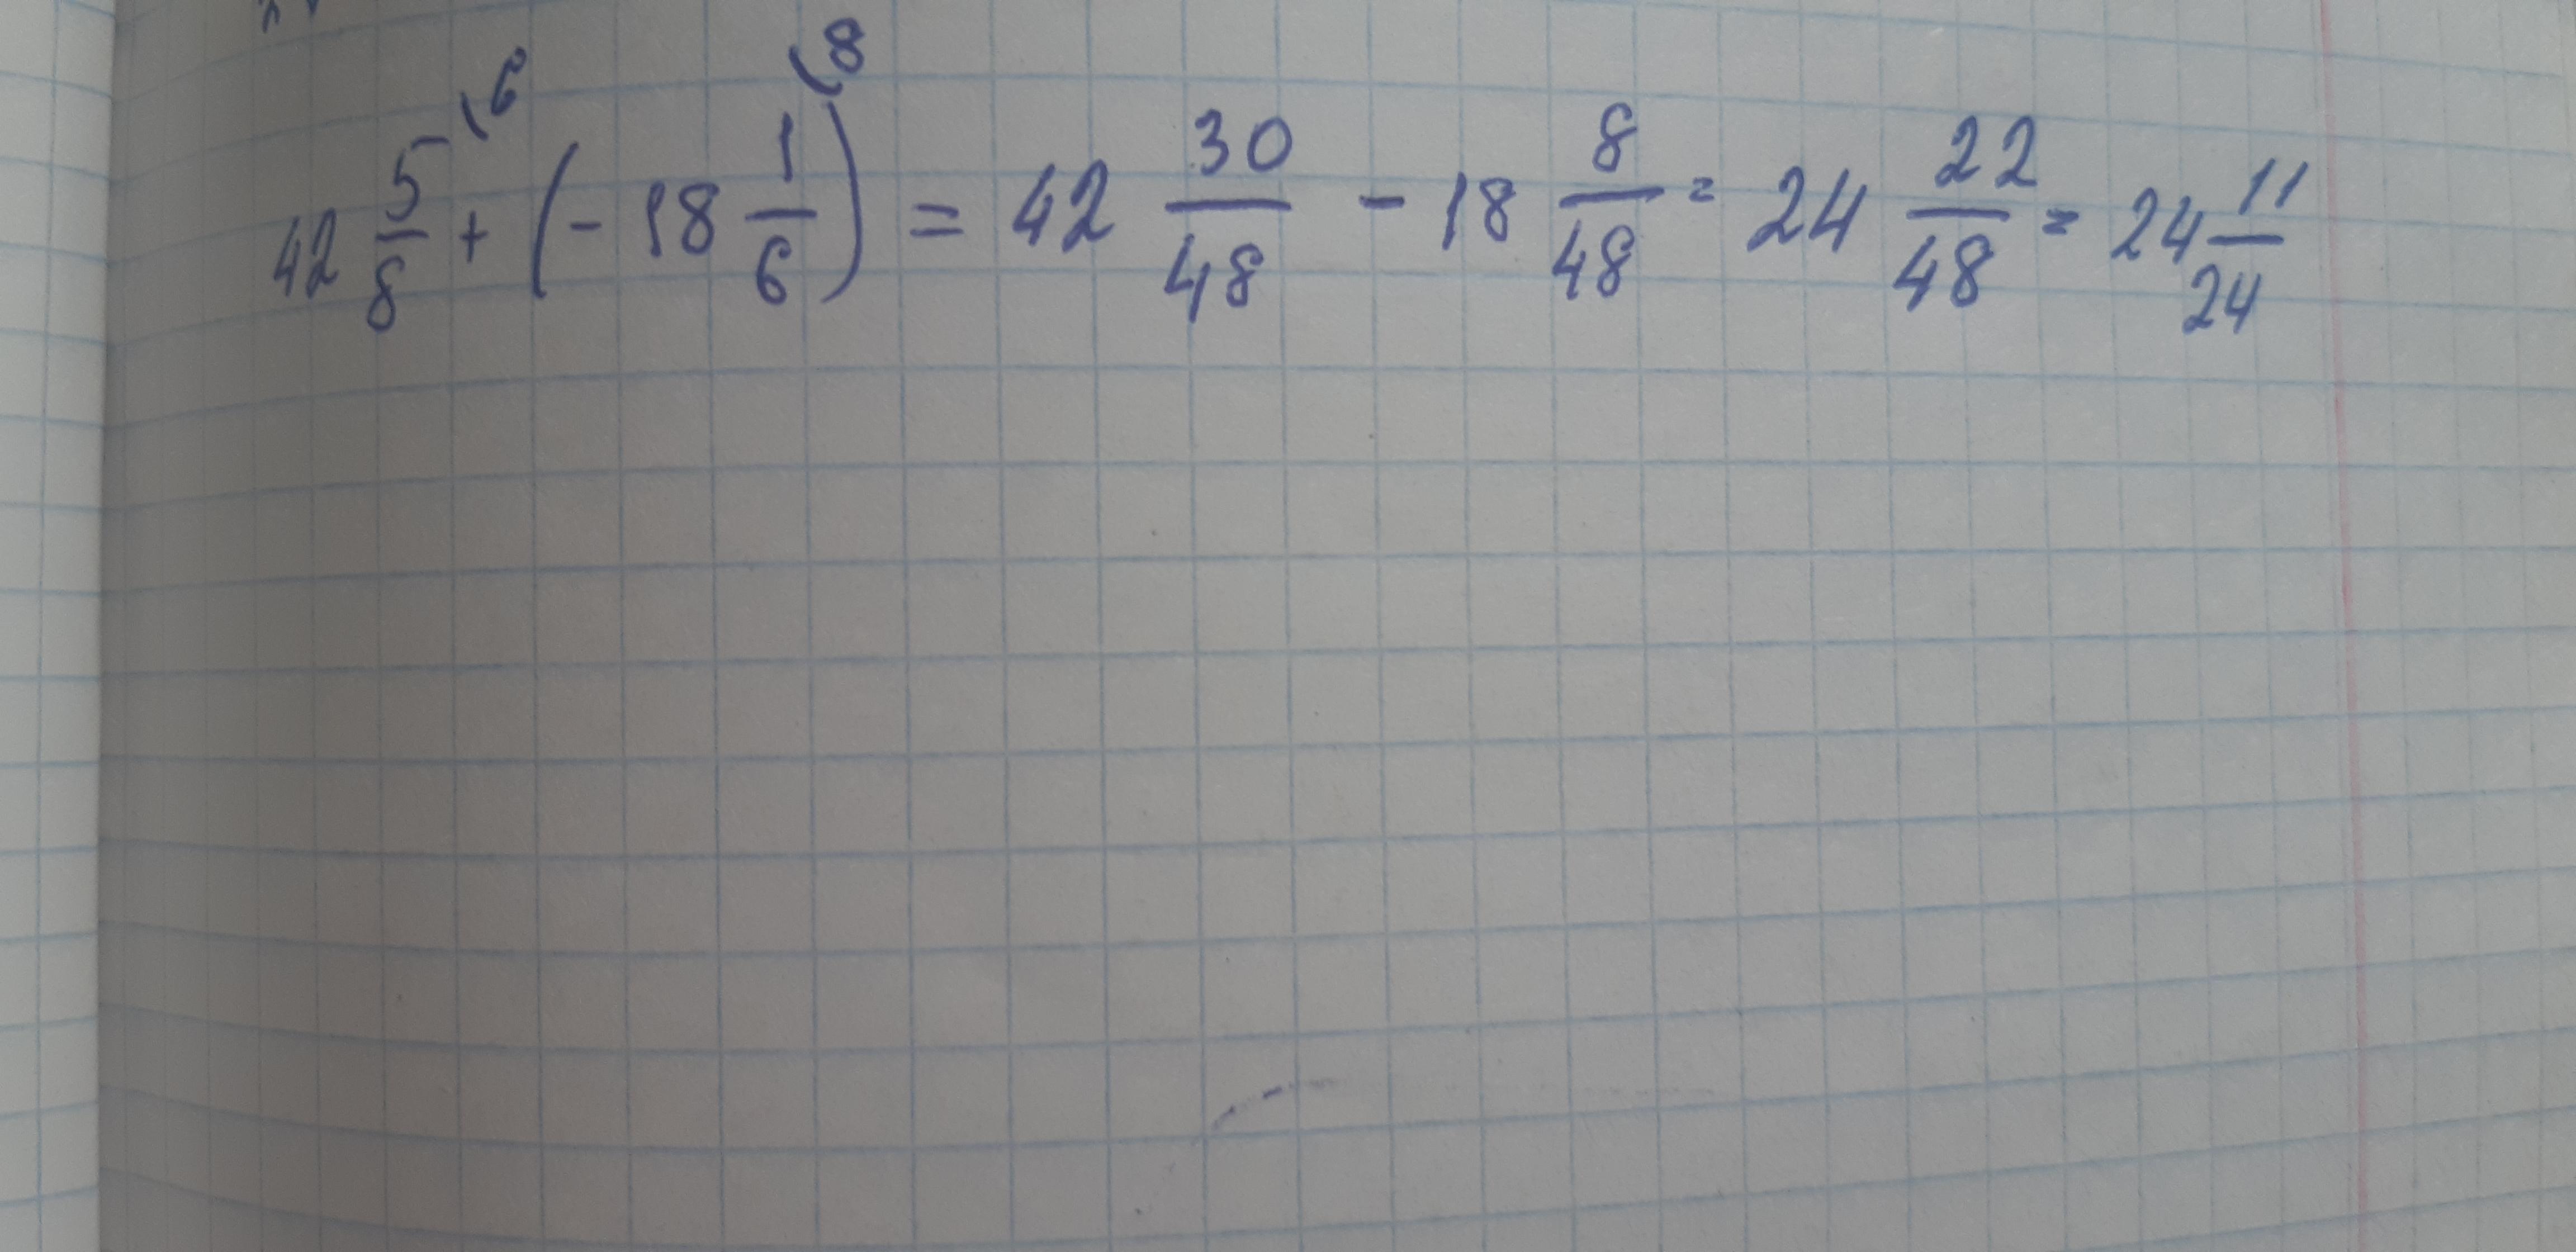 42 5/8 (6 + (- 18 1/6) (8 = 42 30/48 - 18 8/48 = 24 22/48 = 24 11/24